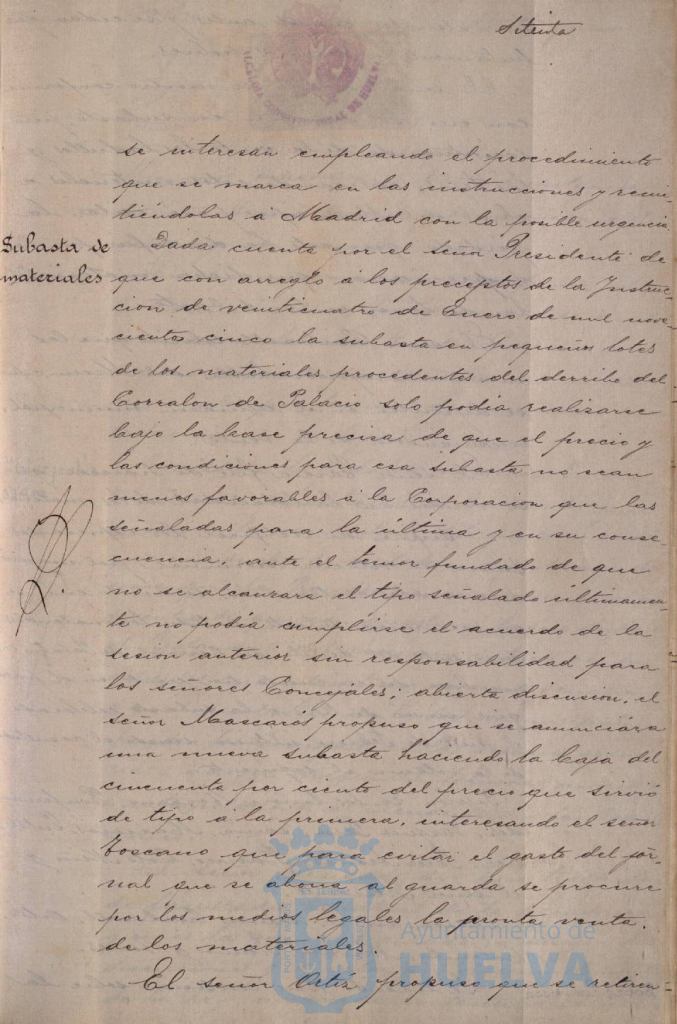 Setenta
ALCALDIA CONSTITUCIONAL DE HUELVA
se interesan empleando el procedimiento
que se marca en las instrucciones y remi-
tiéndolas á Madrid con la posible urgencia
Subasta de
materiales
Dada cuenta por el señor Presidente de
que con arreglo á los preceptos de la Instruc-
cion de veinticuatro de Enero de mil nove-
cientos cinco la subasta en pequeños lotes
de los materiales procedentes del derribo del
Corralon de Palacio solo podia realizarse
bajo la base precisa de que el precio y
las condiciones para esa subasta no sean
menos favorables á la Corporacion que las
señaladas para la última y en su conse-
cuencia, ante el temor fundado de que
no se alcanzara el tipo señalado últimamen-
te no podía cumplirse el acuerdo de la
sesion anterior sin responsabilidad para
los señores Concejales; abierta discusion, el
señor Mascarós propuso que se anunciára
una nueva subasta haciendo la baja del
cincuenta por ciento del precio que sirvió
de tipo á la primera, interesando el señor
Toscano que para evitar el gasto del jor-
nal que se abona al guarda se procure
por los medios legales la pronta venta
de los materiales.
El señor Ortíz propuso que se retiren
Ayuntamiento de
HUELVA